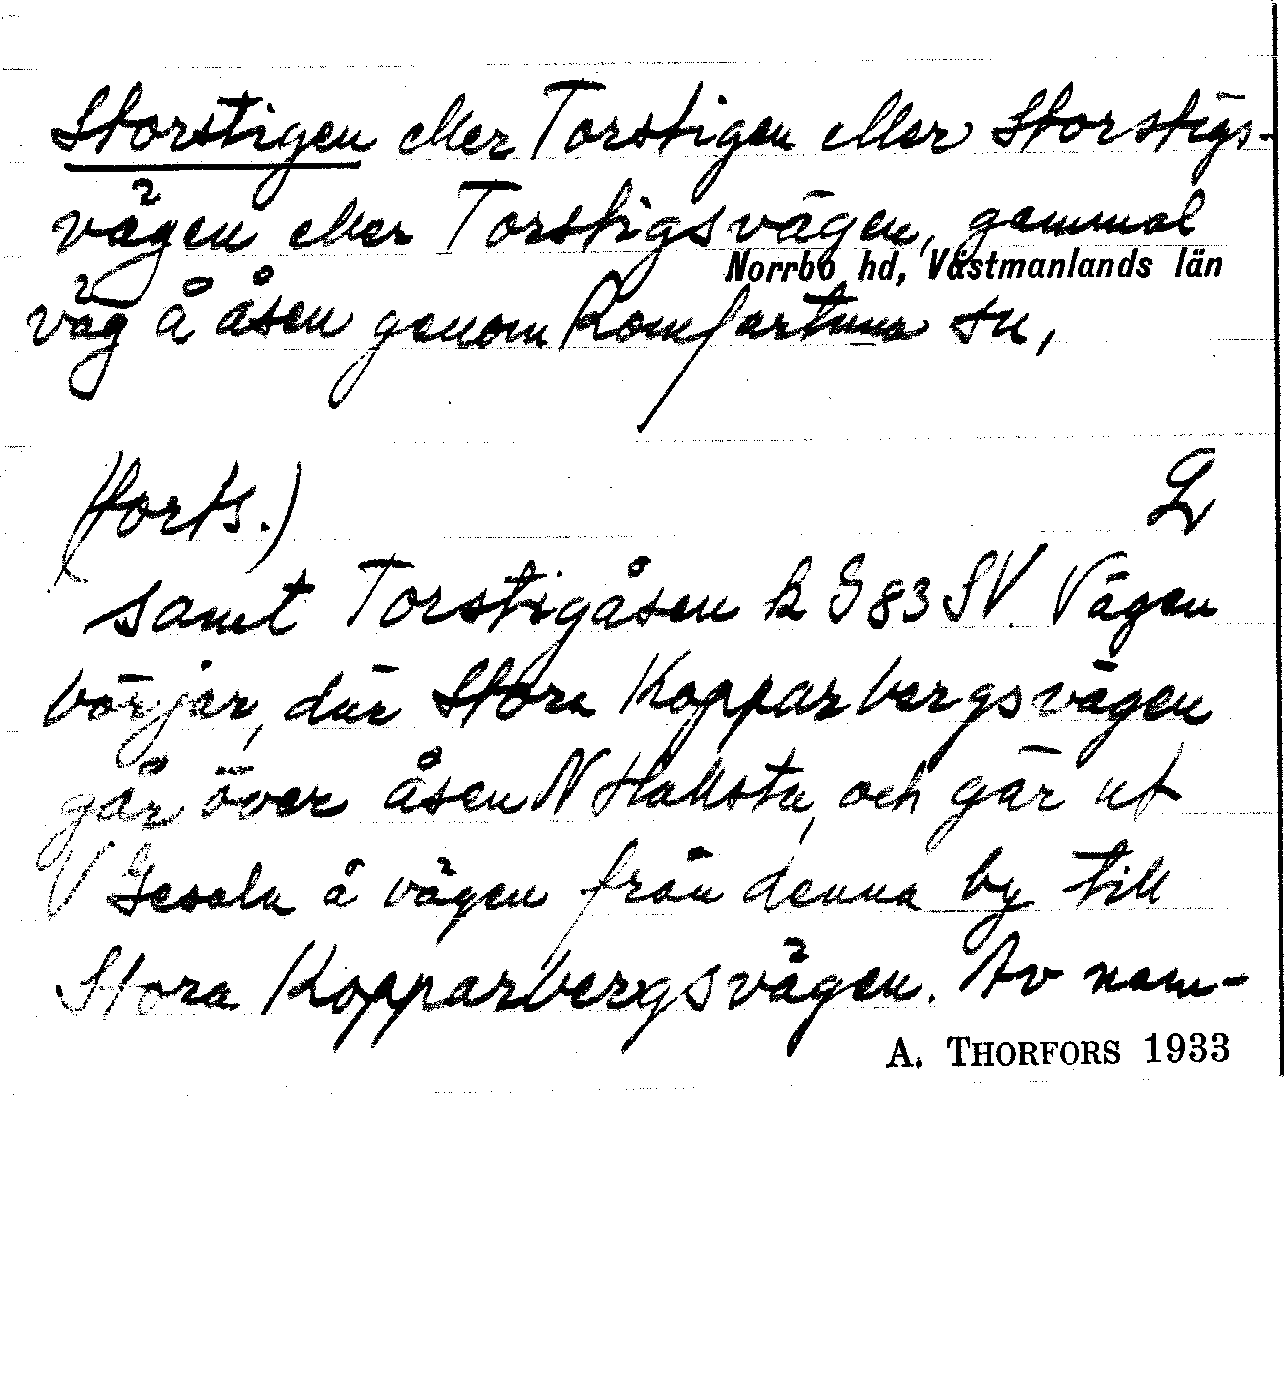 Storstigen eller Torstigen eller Storstigs-
vägen eller Torstigsvägen, gammal
Norrbo hd, Västmanlands län
väg å åsen genom Romfartuna sn,
(forts.)
samt Torstigåsen k 983 SV. Vägen
börjar, där Stora Kopparbergsvägen
går över åsen N Hallsta, och går ut
V Gesala å vägen från denna by till
Stora Kopparbergsvägen. Av nam-
A. THORFORS 1933